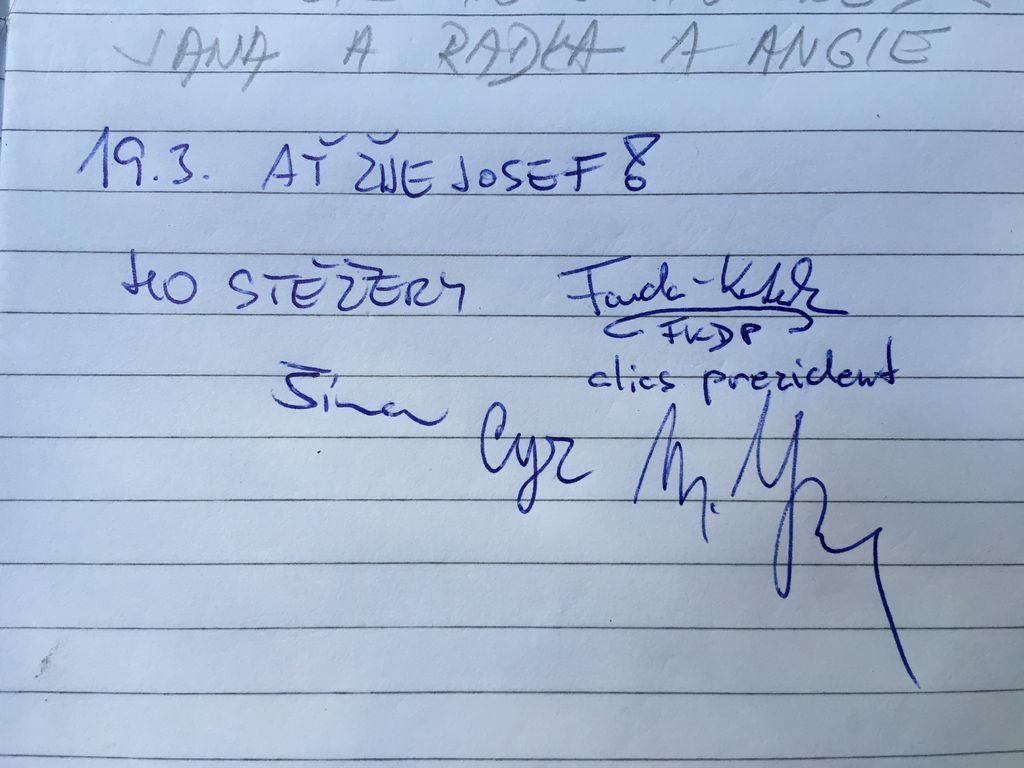 JANA A RADKA A ANGIE
19.3. AŤ ŽIJE JOSEF
HO STĚŽERY
FKDP
alias prezident
Šíma
Cyr